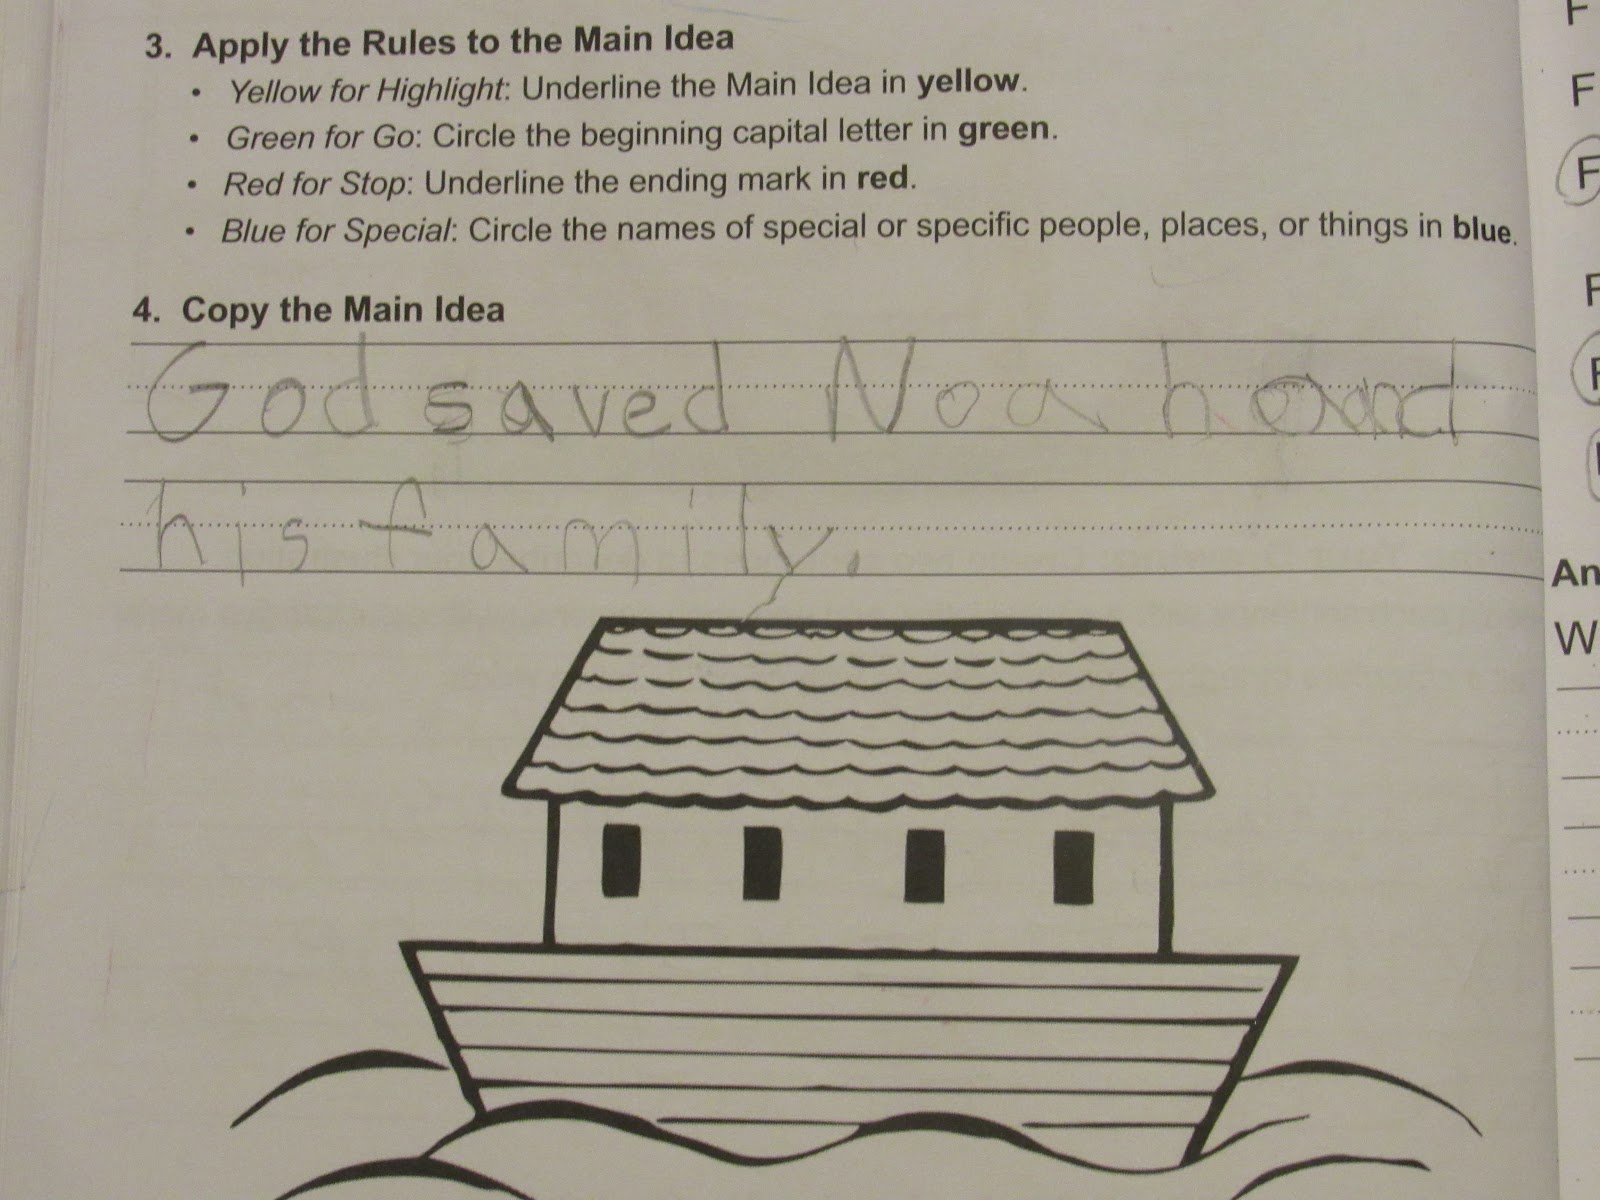 3. Apply the Rules to the Main Idea
• Yellow for Highlight: Underline the Main Idea in yellow.
• Green for Go: Circle the beginning capital letter in green.
• Red for Stop: Underline the ending mark in red.
• Blue for Special: Circle the names of special or specific people, places, or things in blue.
4. Copy the Main Idea
God saved Noah and
his family.
F
F
F
F
F
An
W